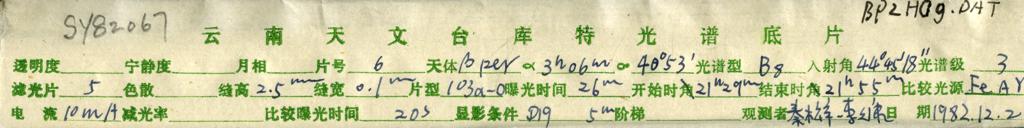 SY82067
BP2H09.DAT
云南天文台库特光谱底片
透明度 宁静度 月相 片号 6 天体 β per α 3h06m δ 40°53' 光谱型 B8 入射角 44°45'18" 光谱级 3
滤光片 5 色散 缝高 2.5mm 缝宽 0.1mm 片型 103a-O 曝光时间 26m 开始时角 21h29m 结束时角 21h55m 比较光源 Fe Ar
电流 10mA 减光率 比较曝光时间 20s 显影条件 D19 5m 阶梯 观测者 日期 1982.12.2